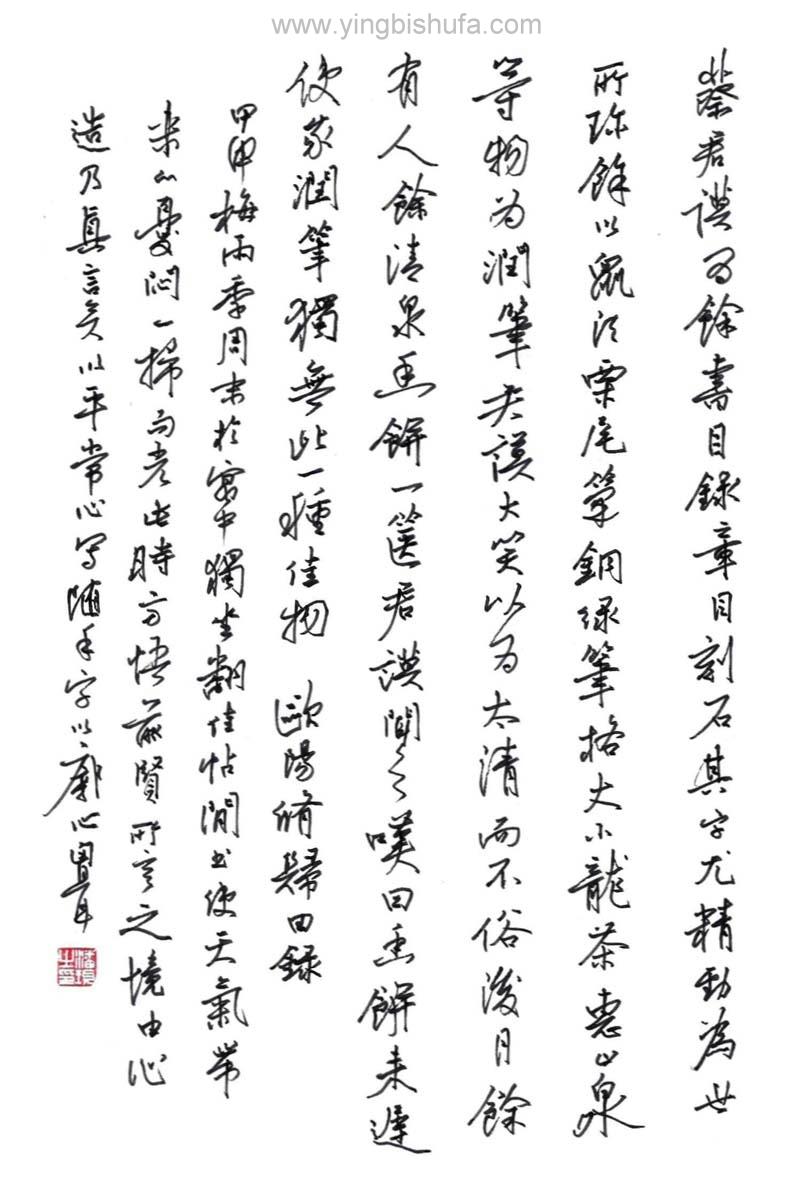 www.yingbishufa.com
蔡君謨為餘書目錄章目刻石其字尤精勁為世
所珍餘以鼠須栗尾筆銅綠筆格大小龍茶惠山泉
等物為潤筆君謨大笑以為太清而不俗後月餘
有人餘清泉香餅一篋君謨聞之嘆曰香餅來遲
使我潤筆獨無此一種佳物 歐陽脩歸田錄
甲申梅雨季周末於寓中獨坐翻佳帖間書使天氣帶
來的憂悶一掃而光此時方悟前賢所言之境由心
造乃真言矣以平常心寫隨手字以廓心胃耳